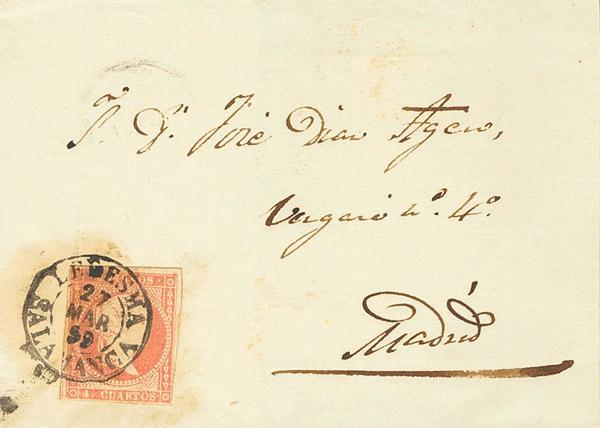 S. D. José Diaz Agero,
nº. 4º.
Madrid
LEDESMA
27
MAR
59
SALAMANCA
4 CUARTOS